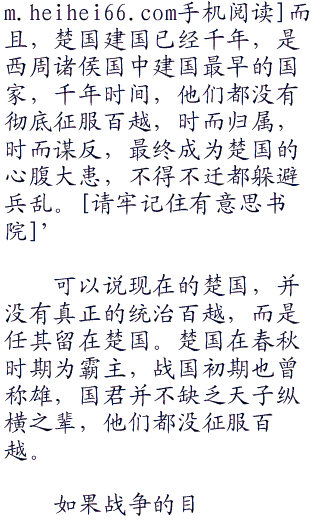 m.heihei66.com手机阅读]而
且，楚国建国已经千年，是
西周诸侯国中建国最早的国
家，千年时间，他们都没有
彻底征服百越，时而归属，
时而谋反，最终成为楚国的
心腹大患，不得不迁都躲避
兵乱。[请牢记住有意思书
院]’
可以说现在的楚国，并
没有真正的统治百越，而是
任其留在楚国。楚国在春秋
时期为霸主，战国初期也曾
称雄，国君并不缺乏天子纵
横之辈，他们都没征服百
越。
如果战争的目